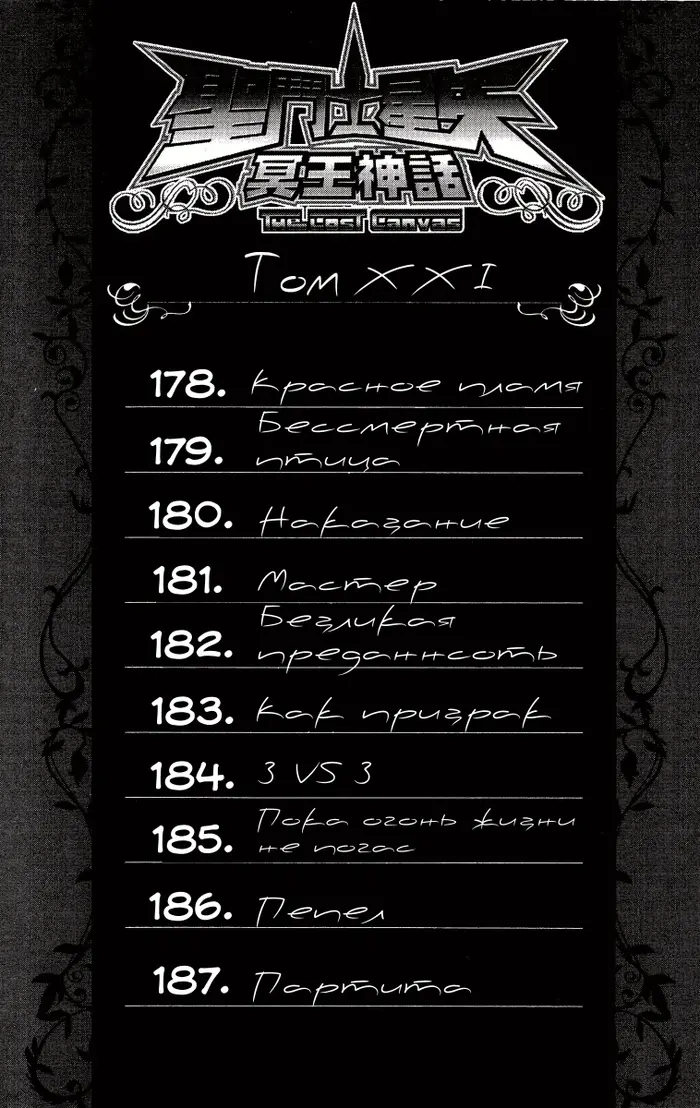 聖闘士星矢
冥王神話
The Lost Canvas
Том XXI
178. Красное пламя
179. Бессмертная
птица
180. Наказание
181. Мастер
182. Безликая
преданнсоть
183. Как призрак
184. 3 VS 3
185. Пока огонь жизни
не погас
186. Пепел
187. Партита